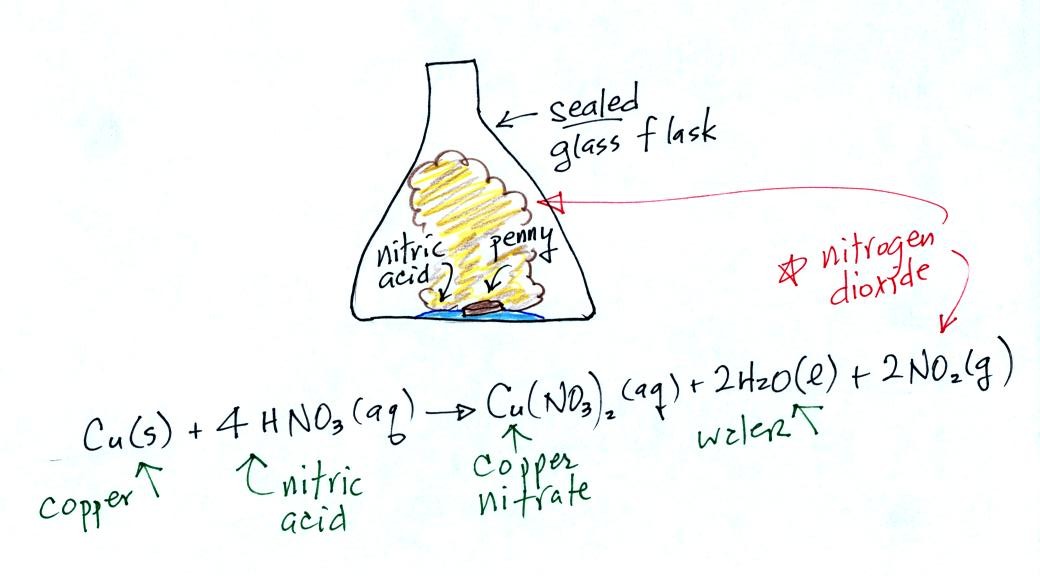 sealed
glass flask
nitric
acid
penny
nitrogen
dioxide
Cu(s) + 4 HNO₃ (aq) → Cu(NO₃)₂ (aq) + 2H₂O(l) + 2NO₂(g)
copper
nitric
acid
copper
nitrate
water